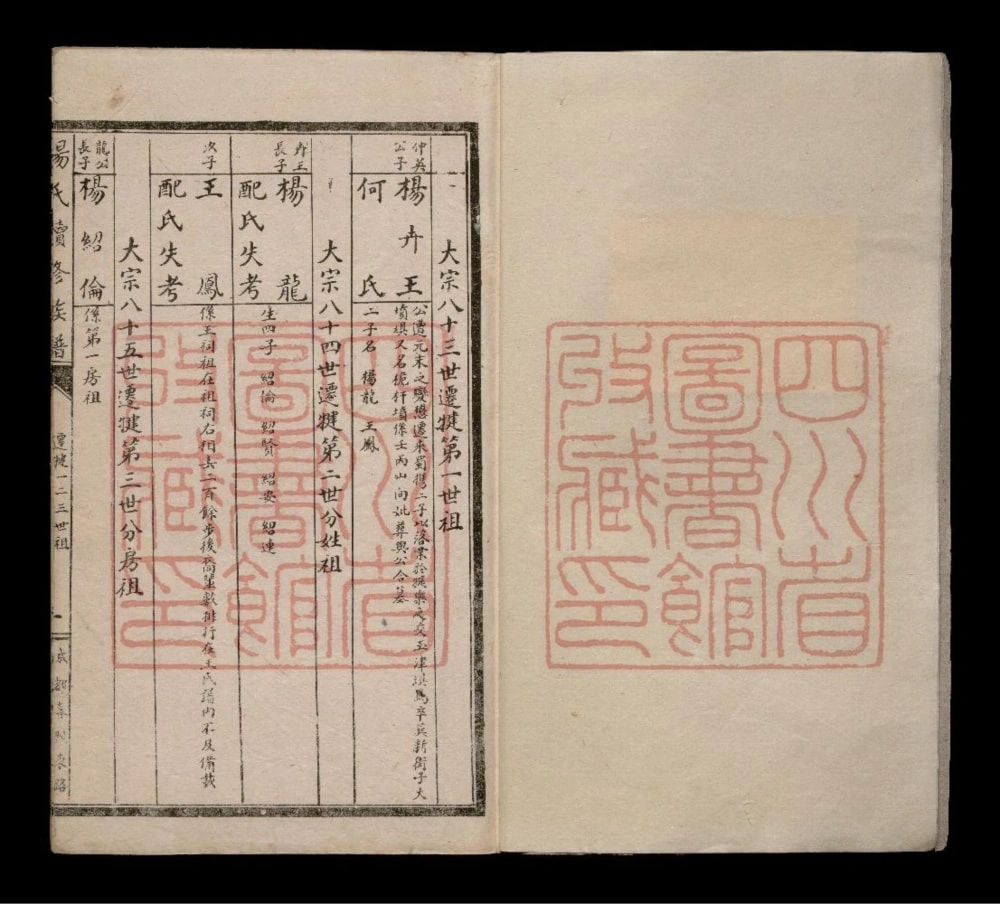 四川省
圖書館
收藏印
大宗八十三世遷犍第一世祖
仲英
公子
楊卉王
公遭元末之變懋遷來蜀攜二子以落業於犍樂之交玉津壩馬卒葬新街子大
墳壩又名桅杆墳係壬丙山向妣葬與公合墓
何氏
二子名 楊龍 王鳳
大宗八十四世遷犍第二世分姓祖
卉王
長子
楊龍
生四子 紹倫 紹賢 紹安 紹連
配氏失考
次子
王鳳
係王祠祖在祖祠右相去二百餘步後裔輩數排行在王氏譜內不及備載
配氏失考
大宗八十五世遷犍第三世分房祖
龍公
長子
楊紹倫
係第一房祖
楊氏續修族譜
遷犍一二三世祖
一
成都